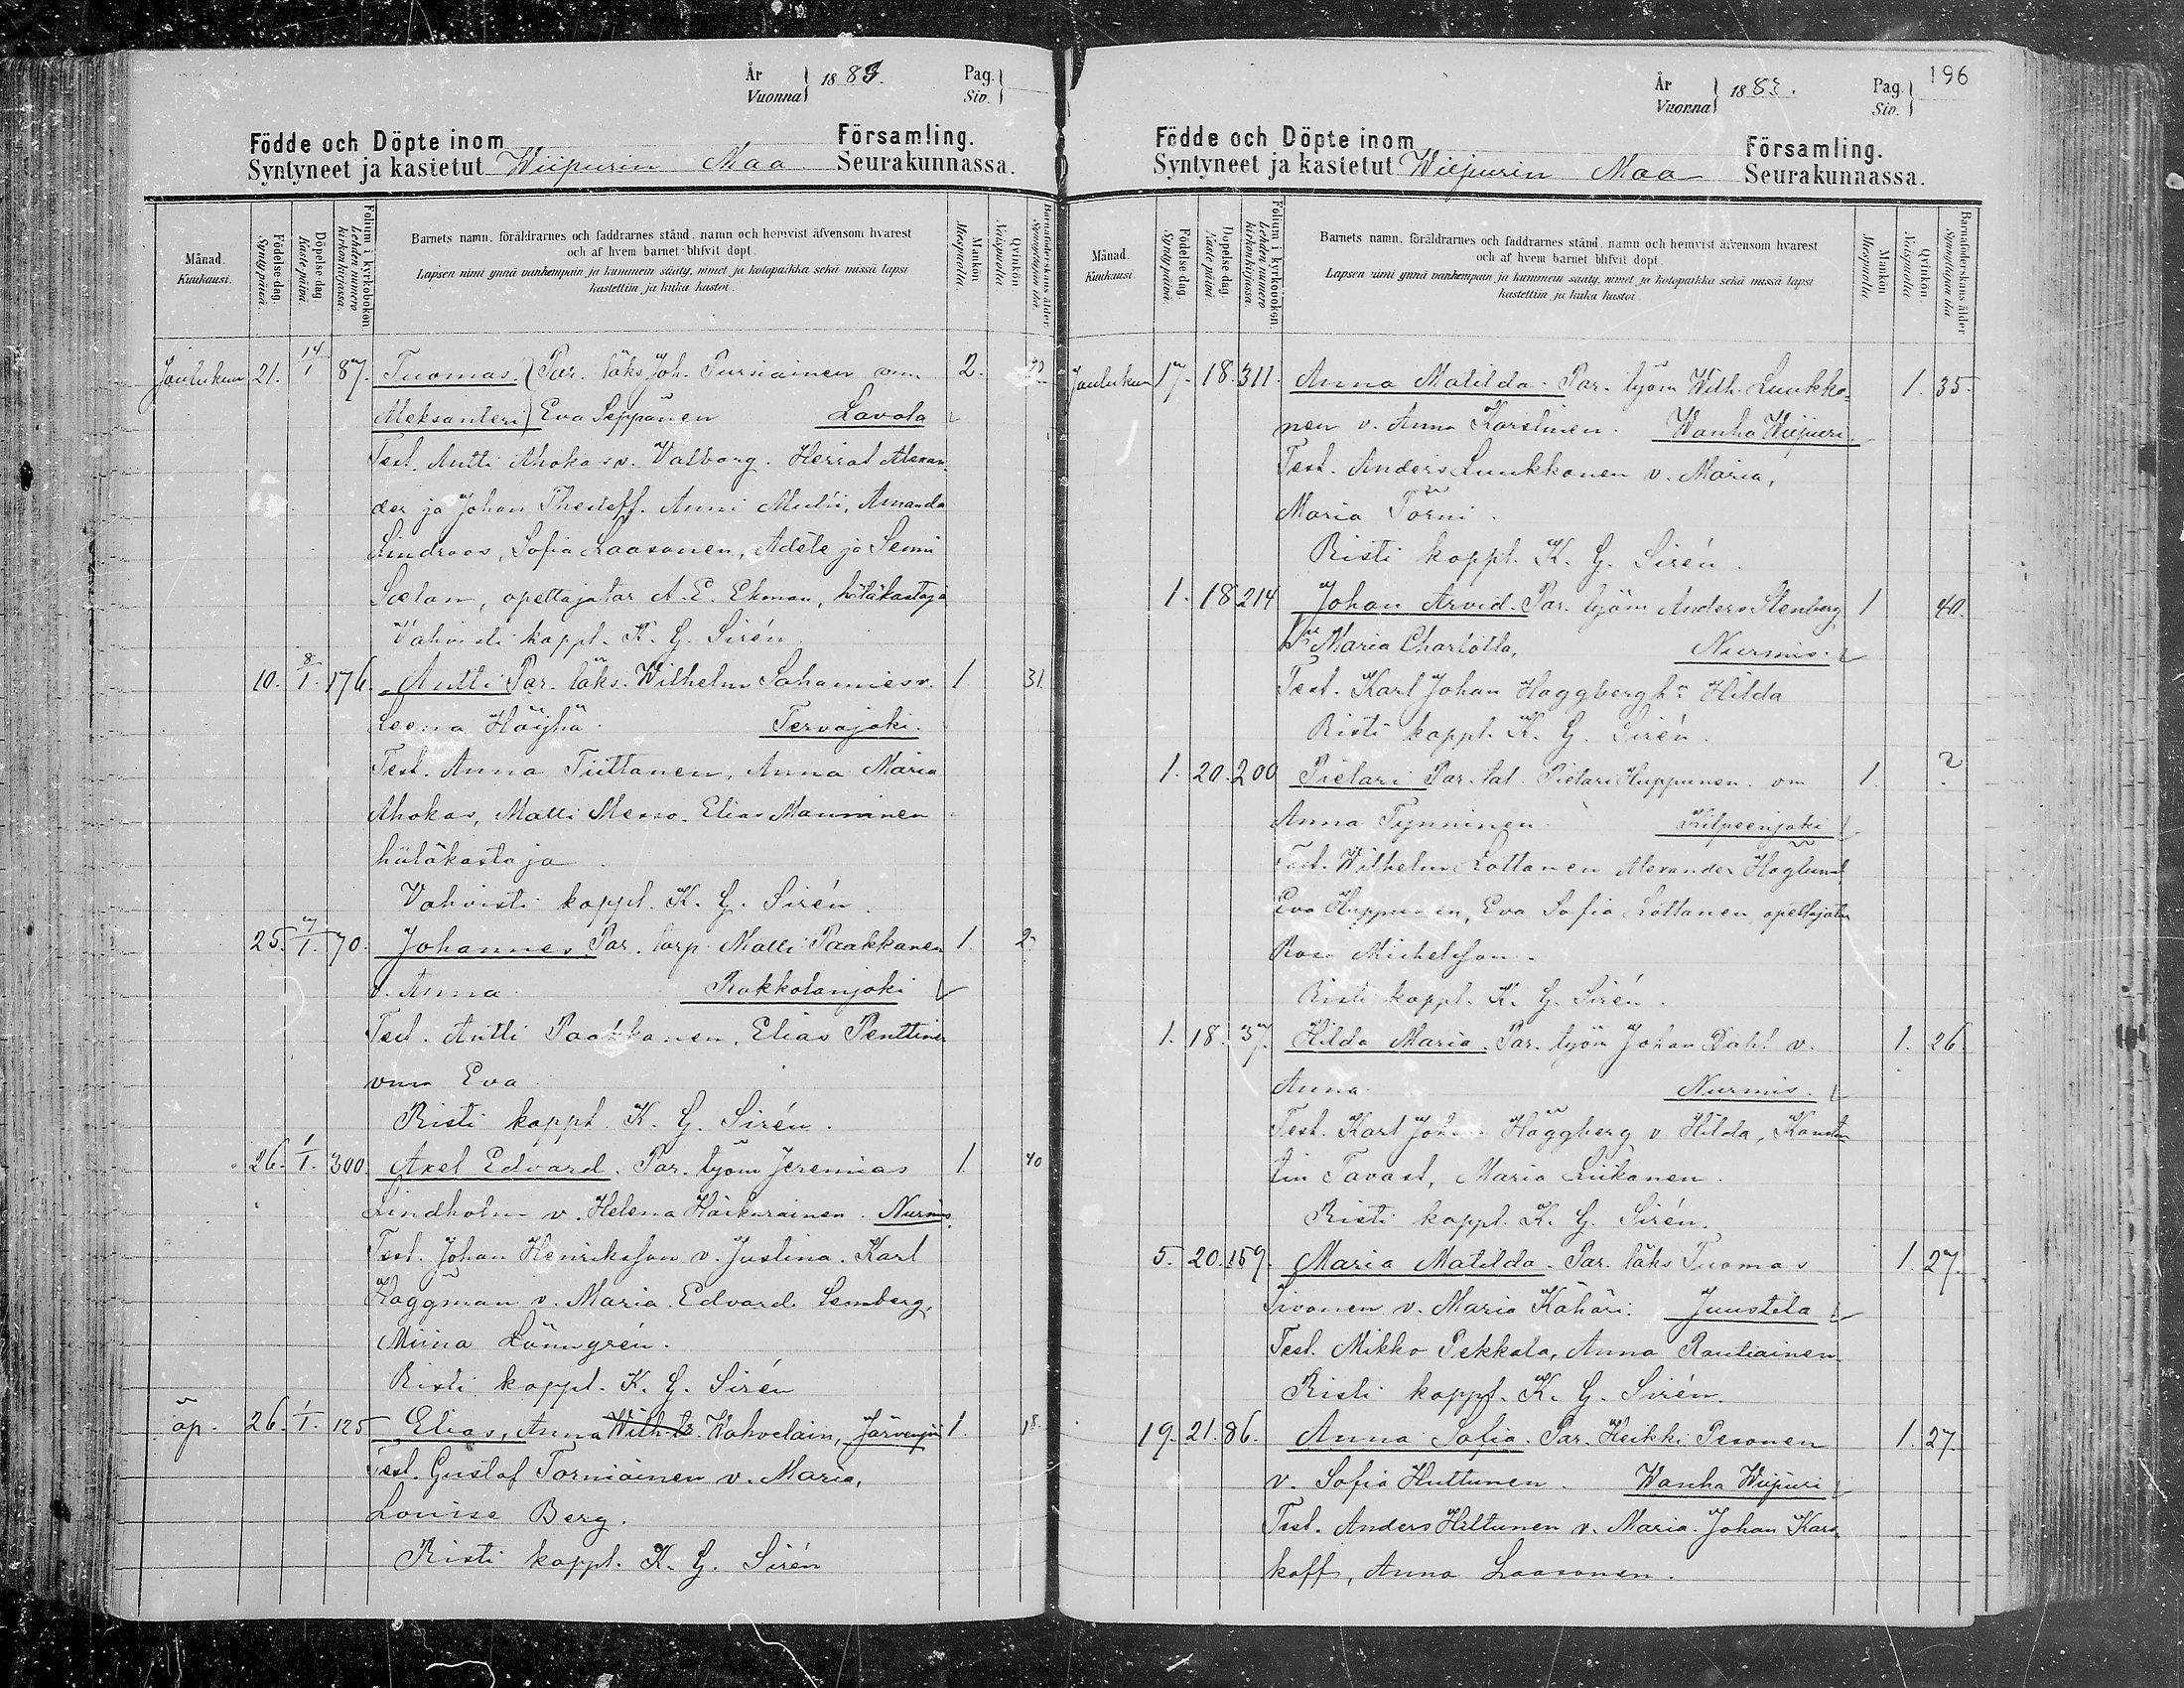 År
Vuonna
1883.
Pag.
Siv.
Födde och Döpte inom
Församling.
Syntyneet ja kastetut Wiipurin Maa Seurakunnassa.
Månad. Kuukausi.
Födelse dag. Syntypäivä.
Döpelse dag. Kaste päivä.
Folium i kyrkoboken Lehden numero kirkonkirjassa.
Barnets namn, föräldrarnes och faddrarnes stånd, namn och hemvist äfvensom hvarest
och af hvem barnet blifvit döpt.
Lapsen nimi ynnä vanhempain ja kummein sääty, nimet ja kotopaikka sekä missä lapsi
kastettiin ja kuka kastoi.
Mankön Miespuolia
Qvinkön Naispuolia
Barnaföderskans ålder. Synnyttäjän ikä.
Joulukuu 21. 14/1 87. Tuomas Par. läks Joh. Pursiainen vm 2.
Aleksanteri Eva Seppänen Lavola
Test. Antti Ahokas v. Valborg. Herrat Alexan
der ja Johan Thesleff. Anni Amanda
Lindroos, Sofia Laasonen, Adéle ja Senni
Saelan, opettajatar A. E. Ekman, hätäkastaja
Vahvisti kappl. K. G. Sirén
10. 8/1. 176. Antti Par. läks. Wilhelm Sahamies v. 1. 31.
Leena Häyhä. Tervajoki.
Test. Anna Tiittanen, Anna Maria
Ahokas, Matti Elias Manninen
hätäkastaja
Vahvisti kappl. K. G. Sirén.
25. 7/1. 70. Johannes. Par. torp. Matti Paakkanen 1. 2.
v. Anna Rakkolanjoki
Test. Antti Paakkanen, Elias Penttinen
vm Eva.
Risti kappl. K. G. Sirén.
26. 1/1. 300. Axel Edvard. Par. työm Jeremias 1. 40
Lindholm v. Helena Härkuräinen. Nurmis.
Test. Johan Henriksson v. Justina. Karl
Häggman v. Maria. Edvard Lemberg,
Miina Lönngrén.
Risti kappl. K. G. Sirén
äp. 26. 1/1. 125 Elias, Anna Wilh. tr. Wahvelain, Järvenpä 1. 18.
Test. Gustaf Torniainen v. Maria,
Louise Berg.
Risti kappl. K. G. Sirén
196
År
Vuonna
1883.
Pag.
Siv.
Födde och Döpte inom
Församling.
Syntyneet ja kastetut Wiipurin Maa Seurakunnassa.
Månad. Kuukausi.
Födelse dag. Syntypäivä.
Döpelse dag. Kaste päivä.
Folium i kyrkoboken Lehden numero kirkonkirjassa.
Barnets namn, föräldrarnes och faddrarnes stånd, namn och hemvist äfvensom hvarest
och af hvem barnet blifvit döpt.
Lapsen nimi ynnä vanhempain ja kummein sääty, nimet ja kotopaikka sekä missä lapsi
kastettiin ja kuka kastoi.
Mankön Miespuolia
Qvinkön. Naispuolia
Barnaföderskans ålder Synnyttäjän ikä
Joulukuu 17. 18. 311. Anna Matilda. Par. työm Wilh. Luukko-
nen v. Anna Karstinen. Wanha Wiipuri 1. 35.
Test. Anders Luukkonen v. Maria,
Maria Törni.
Risti kappl. K. G. Sirén.
1. 18 214 Johan Arvid. Par. työm Anders Stenberg 1 40.
hu Maria Charlotta, Nurmis.
Test. Karl Johan Häggberg h: Hilda
Risti kappl. K. G. Sirén.
1. 20. 200 Pietari Par. tal. Pietari Huppunen vm 1. ?
Anna Tynninen. Kilpeenjoki
Test. Wilhelm Lottanen Alexander Höglund,
Eva Huppunen, Eva Sofia Lottanen, opettajatar
Rosa Michelsson.
Risti kappl. K. G. Sirén.
1. 18. 37. Hilda Maria. Par. työm Johan Dahl v. 1. 26
Anna Nurmis.
Test. Karl Johan Häggberg v Hilda, Konstan
tin Tavast, Maria Liikanen.
Risti kappl. K. G. Sirén.
5. 20. 159. Maria Matilda. Par. läks Tuomas 1. 27.
Sivonen v. Maria Kähäri. Juustila
Test. Mikko Pekkola, Anna Rautiainen.
Risti kappl. K. G. Sirén.
19. 21. 86. Anna Sofia. Par. Heikki Pesonen 1. 27.
v. Sofia Huttunen. Wanha Wiipuri
Test. Anders Hiltunen v. Maria. Johan Kars
koff, Anna Laasonen.